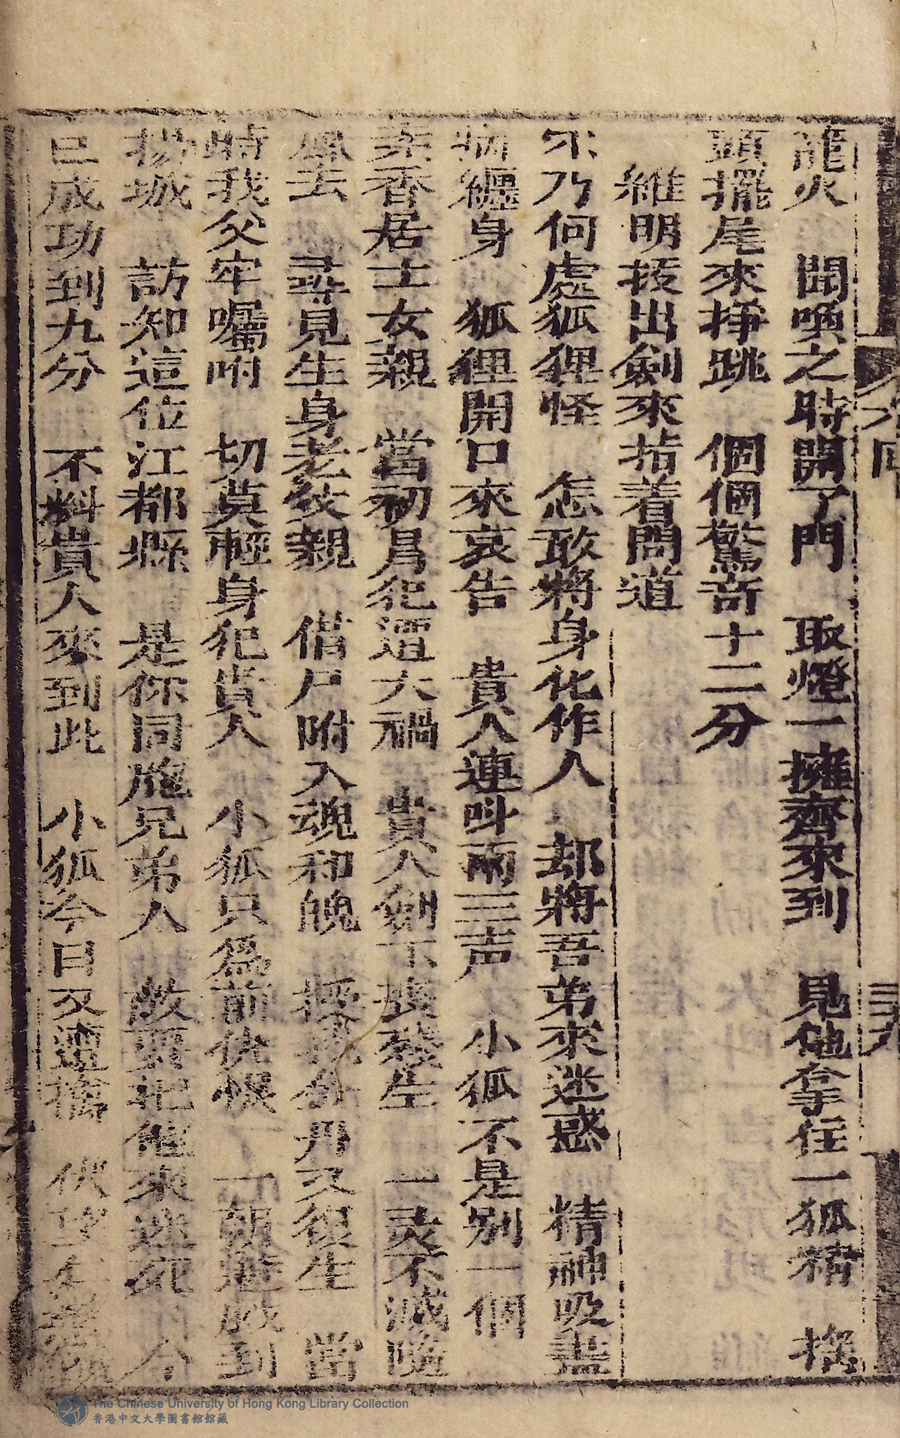 龍火　聞喚之時開了門　取燈一擁齊來到　見他拿住一狐精　搖
頭擺尾來掙跳　個個驚奇十二分
維明拔出劍來指着問道
尔乃何處狐狸怪　怎敢將身化作人　却將吾弟來迷惑　精神吸盡
病纏身　狐狸開口來哀告　貴人連呌兩三声　小狐不是別一個
來香居士女親　當初冐犯遭大禍　貴人劍下喪殘生　一灵不滅隨
風去　尋見生身老父親　借尸附入魂和魄　授我分丹又復生　當
時我父牢囑咐　切莫輕身犯貴人　小狐只爲前仇恨　一朝遊戲到
揚城　訪知這位江都縣　是你同胞兄弟人　故要把他來迷死　今
已成功到九分　不料貴人來到此　小狐今日又遭擒　伏
The Chinese University of Hong Kong Library Collection
香港中文大學圖書館館藏